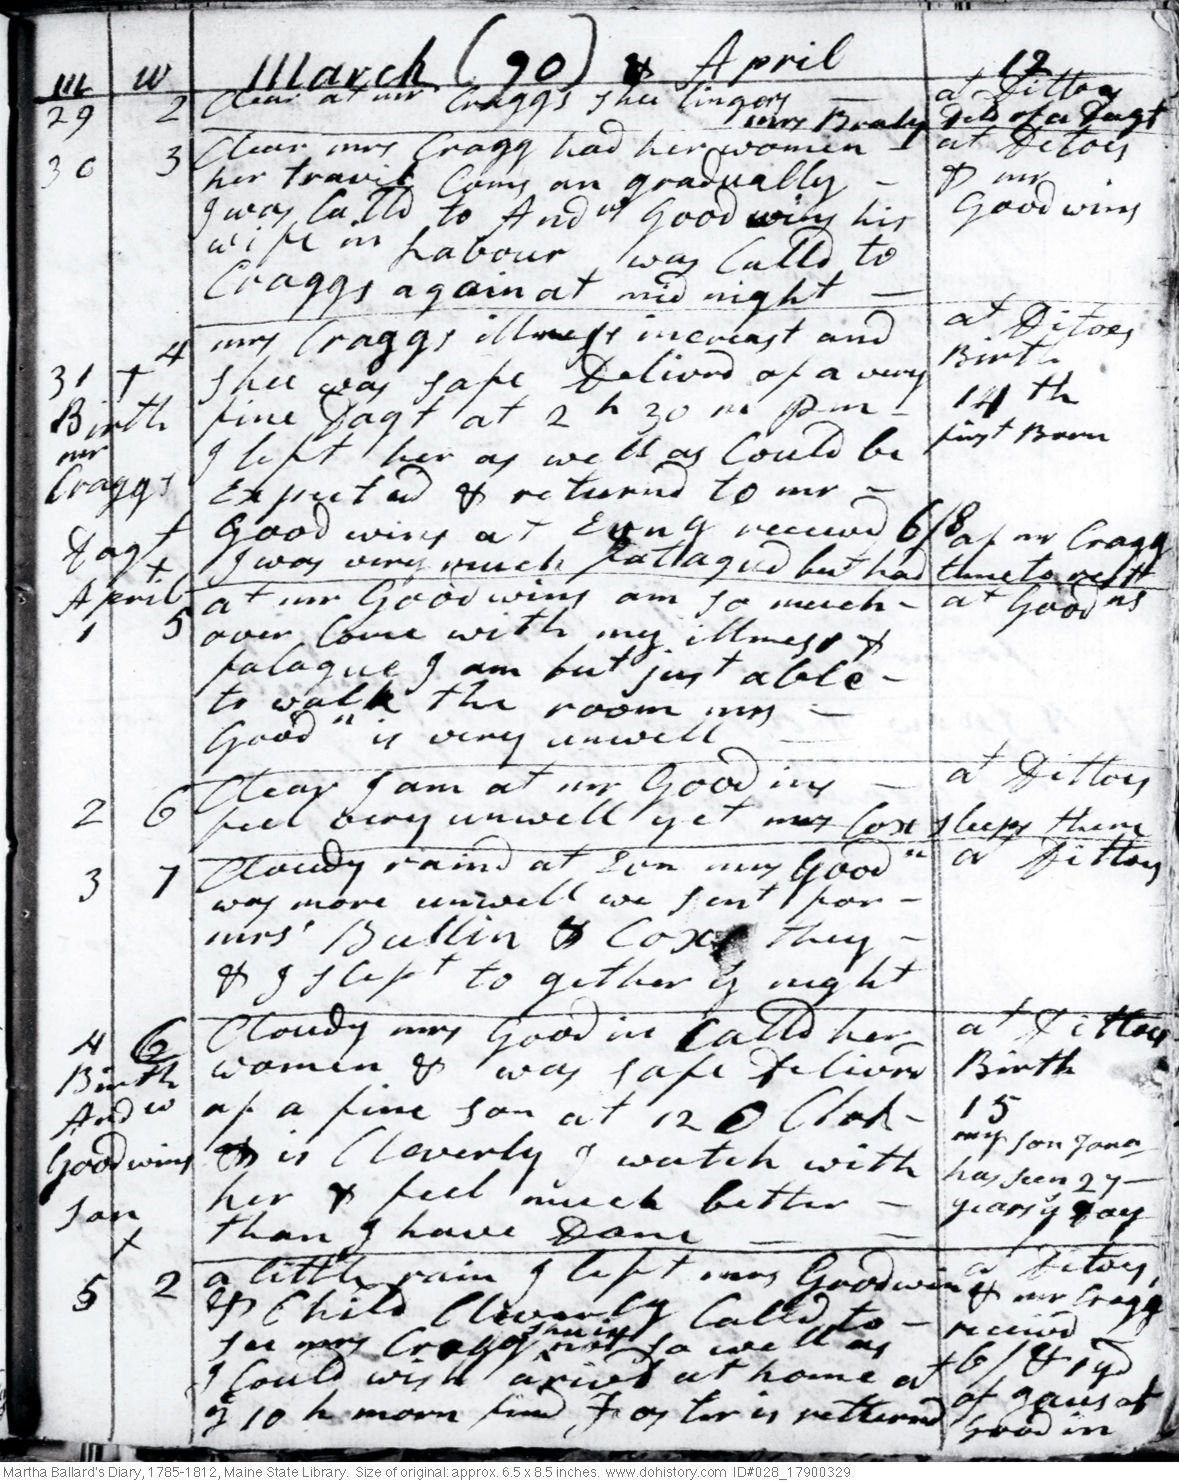 m w March (90) & April 12
29 2 Clear at mr Craggs shee lingers at Dittoes
mrs Brooks Deld of a Dagt
30 3 Clear mrs Cragg had her women at Ditoes
her travil Coms on gradually & mr
I was Calld to Andw Good wins his Goodwins
wife in Labour was Calld to
Craggs again at mid night
31 + 4 mrs Craggs illness increast and at Ditoes
Birth shee was safe Delivrd of a very Birth
mr fine Dagt at 2 h 30 m Pm 14th
Craggs I left her as well as Could be first Born
Expected & returnd to mr
Dagt Good wins at Evng receivd 6/8 of mr Cragg
+ I was very much fatagud but had time to rest
April at mr Goodwins am so much at Goodns
1 5 over Come with my illness &
fatague I am but just able
to walk the room mrs
Goodn is very unwell
2 6 Clear I am at mr Goodins at Dittoes
feel very unwell yet mrs Cox sleeps there
3 7 Cloudy raind at Evn mrs Goodn at Dittoes
was more unwell we sent for
mrs Bullin & Cox they
& I slept to gether ys night
4 6 Cloudy mrs Goodin Calld her at Dittoes
Birth women & was safe Delivrd Birth
Andw of a fine son at 12 O Clok 15
Goodwins & is Cleverly I watch with my son Jona
son her & feel much better has seen 27
+ than I have Done years ys Day
5 2 a little rain I left mrs Goodwin at Ditoes,
& Child Cleverly Calld to & mr Cragg
see mrs Cragg shee is not so well as receivd
I Could wish arivd at home at 6/ & 1 yd
ye 10 h morn find Foster is returnd of gaus at
Goodin
Martha Ballard's Diary, 1785-1812, Maine State Library. Size of original: approx. 6.5 x 8.5 inches. www.dohistory.com ID#028_17900329